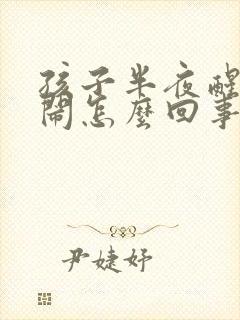 孩子半夜醒
鬧怎麼回事
尹婕妤